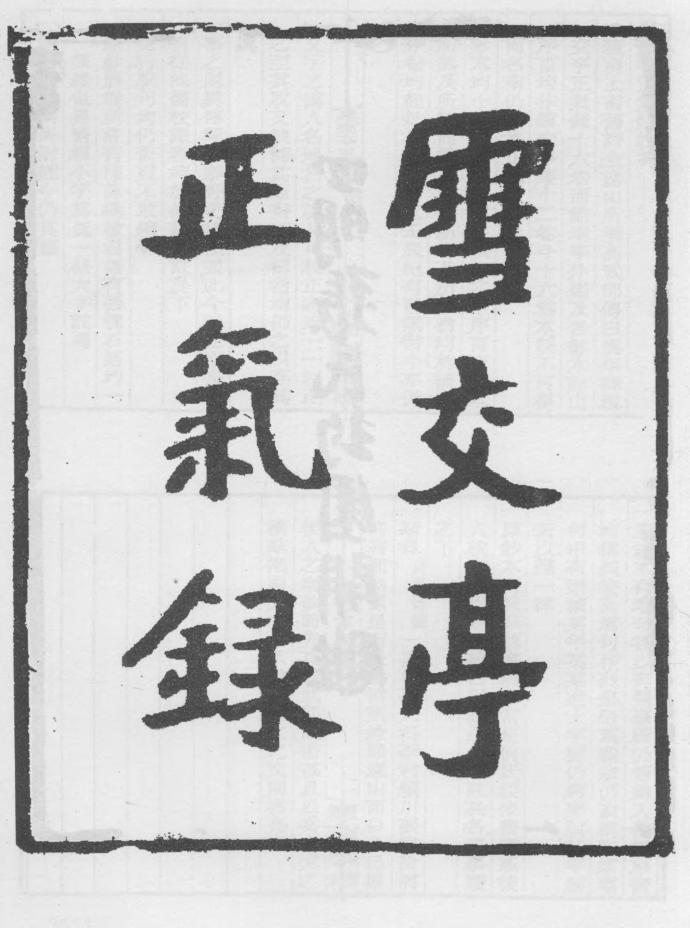 雪交亭
正氣録